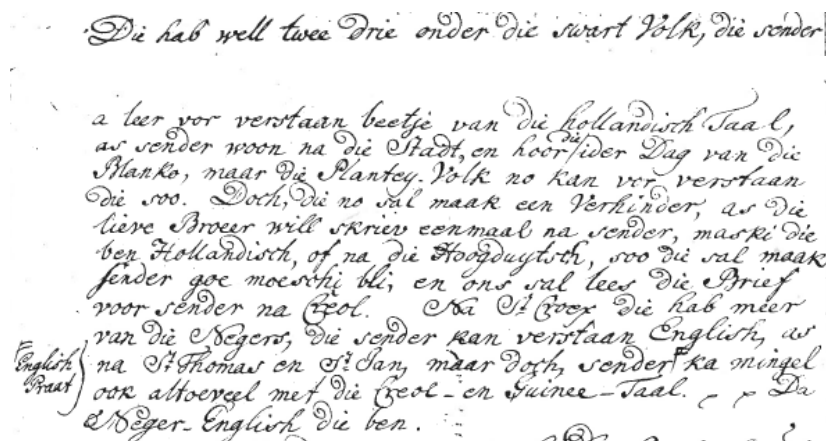 Die hab well twee drie onder die swart Volk, die sender
a leer vor verstaan beetje van die hollandisch Taal,
as sender woon na die Stadt, en hoor die ider Dag van die
Blanko, maar die Plantey-Volk no kan vor verstaan
die soo. Doch, die no sal maak een Verhinder, as die
lieve Broeer will skriev eenmaal na sender, maski die
ben Hollandisch, of na die Hoogduytsch, soo die sal maak
sender goe moeschi bli, en ons sal lees die Brief
voor sender na Creol. Na St Croex die hab meer
van die Negers, die sender kan verstaan English, as
na St Thomas en St Jan, maar doch, sender ka mingel
English
Praat
ook altoeveel met die Creol-en Guinee-Taal. Da
Neger-English die ben.